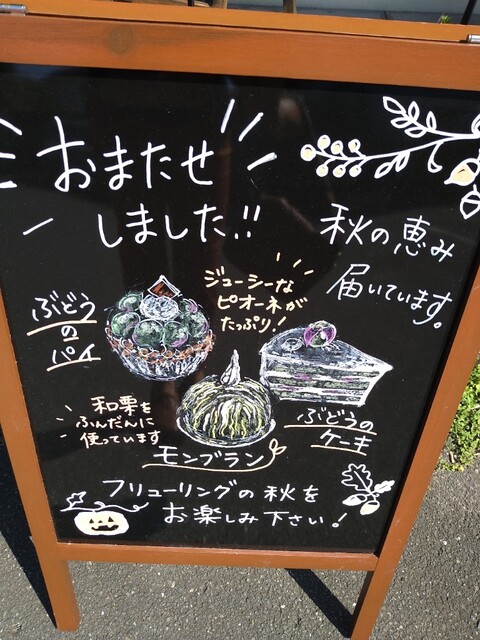 おまたせ
しました!!
秋の恵み
届いています。
ぶどう
の
パイ
ジューシーな
ピオーネが
たっぷり!
和栗を
ふんだんに
使っています
モンブラン
ぶどうの
ケーキ
フリューリングの秋を
お楽しみ下さい!